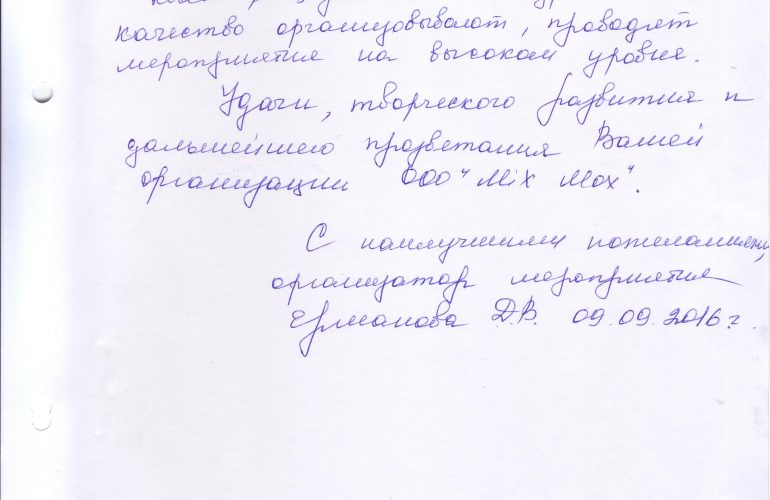 качество организовывают, проводят
мероприятия на высоком уровне.
Удачи, творческого развития и
дальнейшего процветания Вашей
организации ООО "Mix Max".
С наилучшими пожеланиями,
организатор мероприятия
Ермакова Д.В. 09.09.2016г.